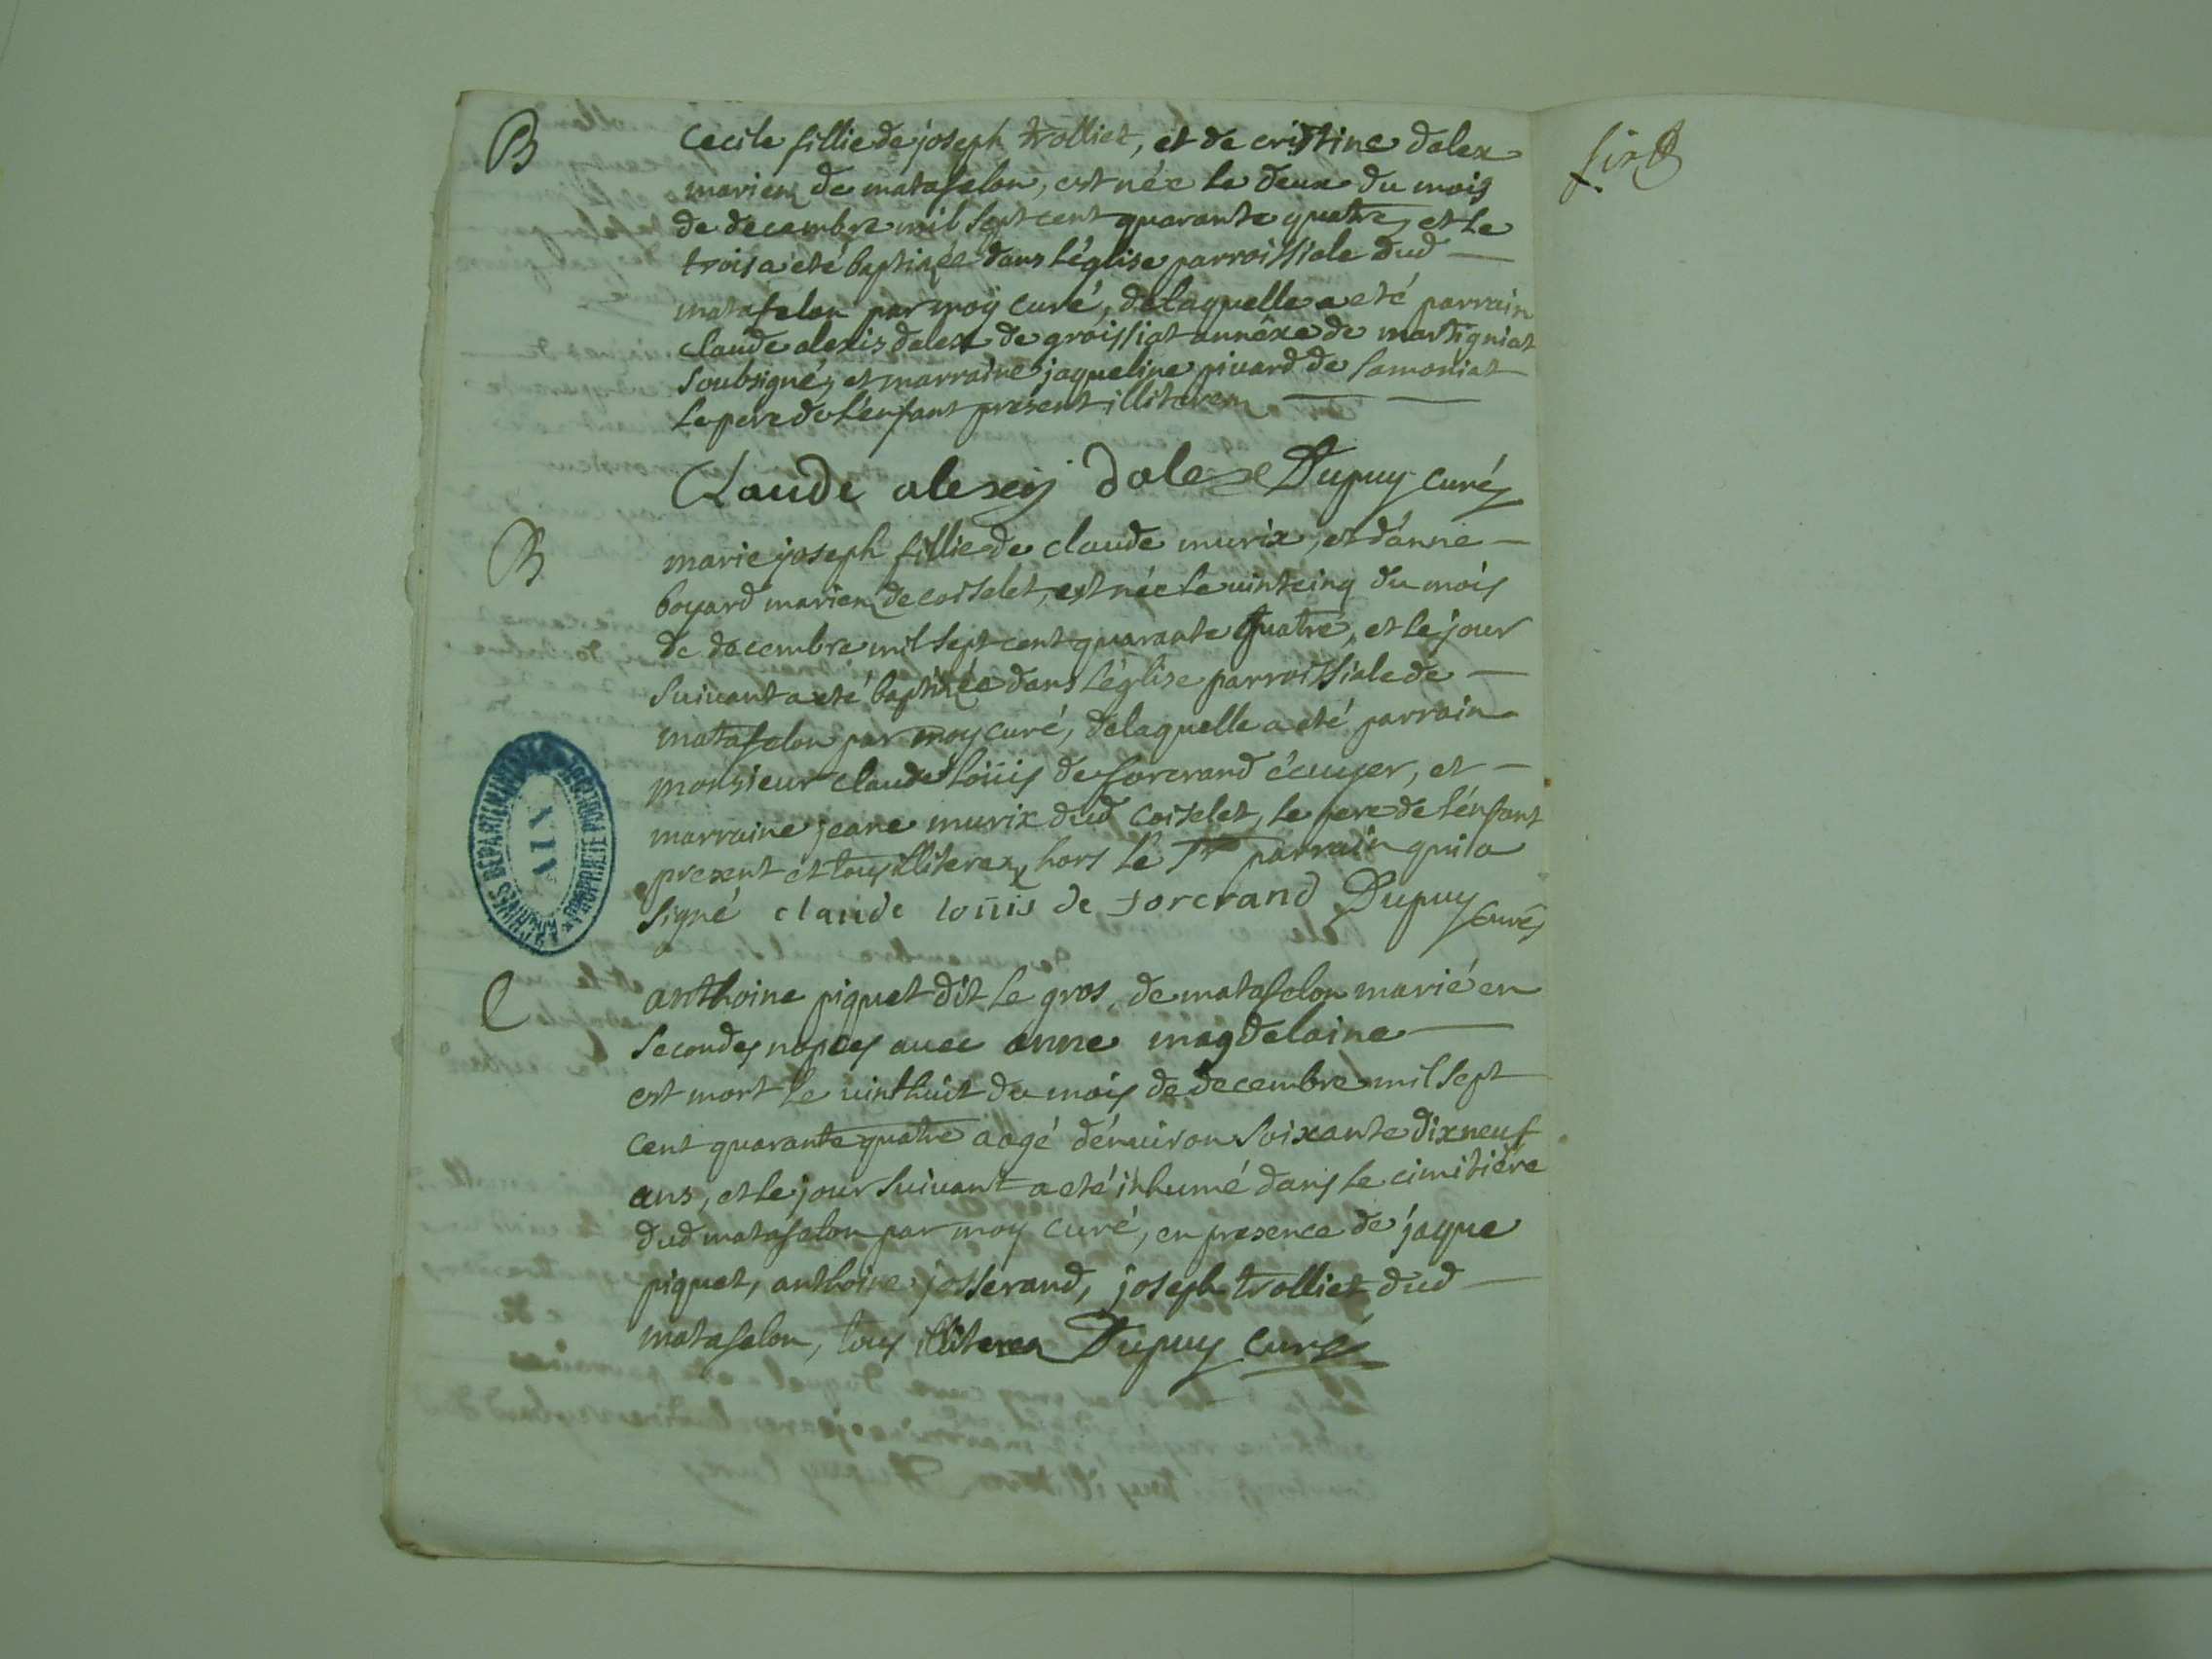 B
Cecile fillie de joseph trolliet, et de cristine dalex
mariez de matafelon, est née le deux du mois
de decembre mil sept cent quarante quatre, et le
trois a eté baptizée dans l'église parroissiale dud
matafelon par moy curé, de laquelle a eté parrain
claude alexis dalex de groissiat annéxe de martigniat
soubsigné, et marraine jaqueline pivard de samoniat
le pere de l'enfant present illiterez
Claude alexis dalex Dupuy curé
B
marie joseph fillie de claude murix, et d'anne
boyard mariez de coiselet, est née le vintcinq du mois
de decembre mil sept cent quarante quatre, et le jour
suivant a eté baptizée dans l'église parroissiale de
matafelon par moy curé, de laquelle a eté parrain
monsieur claude loüis de forcrand écuyer, et
marraine jeane murix dud coiselet, le pere de l'enfant
present et tous illiterez hors le sr parrain qui a
signé claude loüis de forcrand Dupuy curé
C
anthoine piquet dit le gros, de matafelon marié en
secondes nopces avec anne magdelaine
est mort le vinthuit du mois de decembre mil sept
cent quarante quatre aagé d'environ soixante dixneuf
ans, et le jour suivant a eté inhumé dans le cimitiére
dud matafelon par moy curé, en presence de jaque
piquet, anthoine josserand, joseph trolliet dud
matafelon, tous illiterez Dupuy curé
ARCHIVES DEPARTEMENTALES
AIN
PROPRIETE PUBLIQUE
six